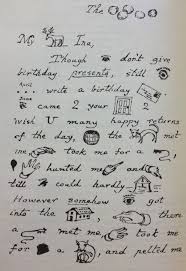 The
My Ina,
Though don't give
birthday presents, still
April write a birthday
came 2 your
wish U many happy returns
of the day, the met
me, took me for a
hunted me and
till could hardly
However somehow got
into the , there a
met me, took me
for a , and pelted me